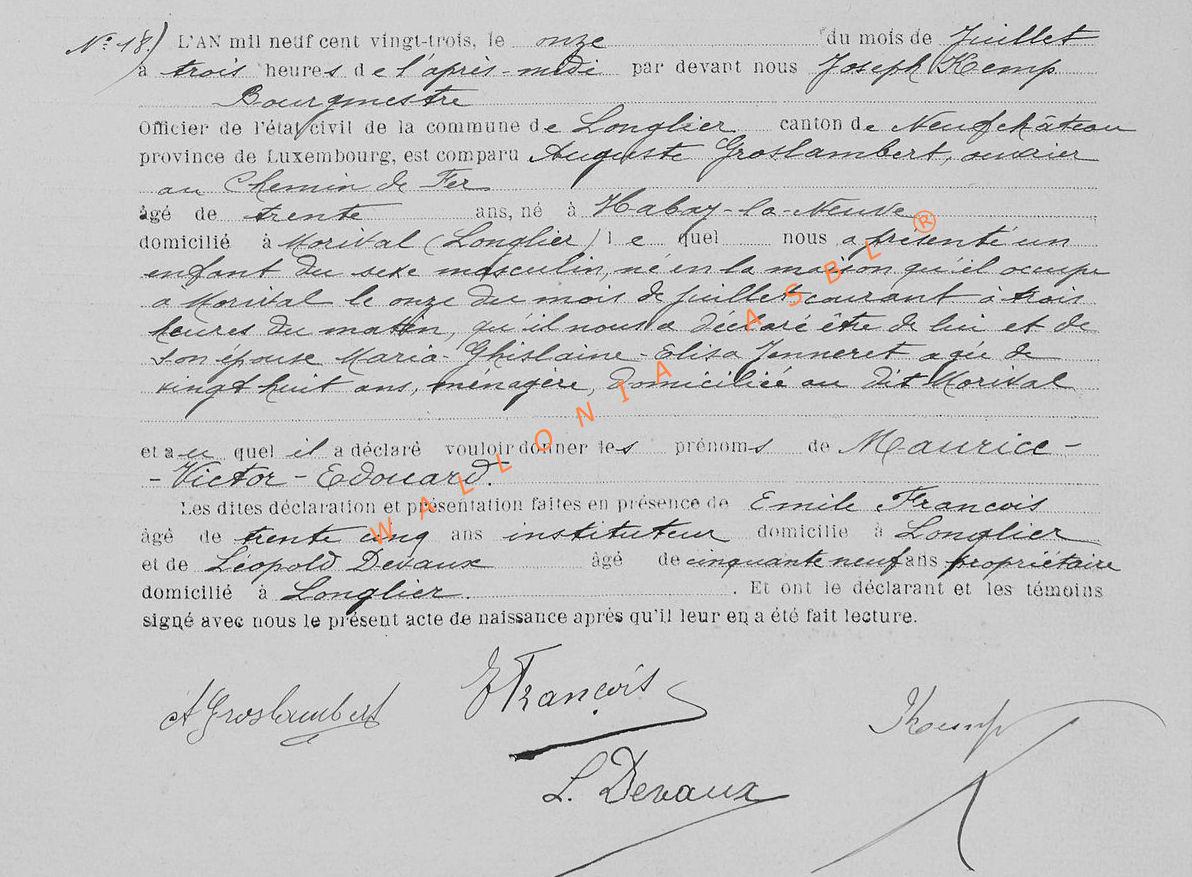 N° 18.) L'AN mil neuf cent vingt-trois, le onze du mois de Juillet
à trois heures de l'après-midi par devant nous Joseph Kemp
Bourgmestre
Officier de l'état civil de la commune de Longlier canton de Neufchâteau
province de Luxembourg, est comparu Auguste Groslambert, ouvrier
au Chemin de Fer
âgé de trente ans, né à Habay-la-Neuve
domicilié à Morival (Longlier) le quel nous a présenté un
enfant du sexe masculin, né en la maison qu'il occupe
a Morival le onze du mois de Juillet courant à trois
heures du matin, qu'il nous a déclaré être de lui et de
son épouse Maria-Ghislaine-Elisa Jenneret agée de
vingt huit ans, ménagère, domiciliée au dit Morival
et au quel il a déclaré vouloir donner les prénoms de Maurice-
-Victor-Edouard.
Les dites déclaration et présentation faites en présence de Emile François
âgé de trente cinq ans instituteur domicilie à Longlier
et de Léopold Devaux âgé de cinquante neuf ans propriétaire
domicilié à Longlier. . Et ont le déclarant et les témoins
signé avec nous le présent acte de naissance après qu'il leur en a été fait lecture.
A Groslambert E François Kemp
L. Devaux
WALLONIA ASBL ®